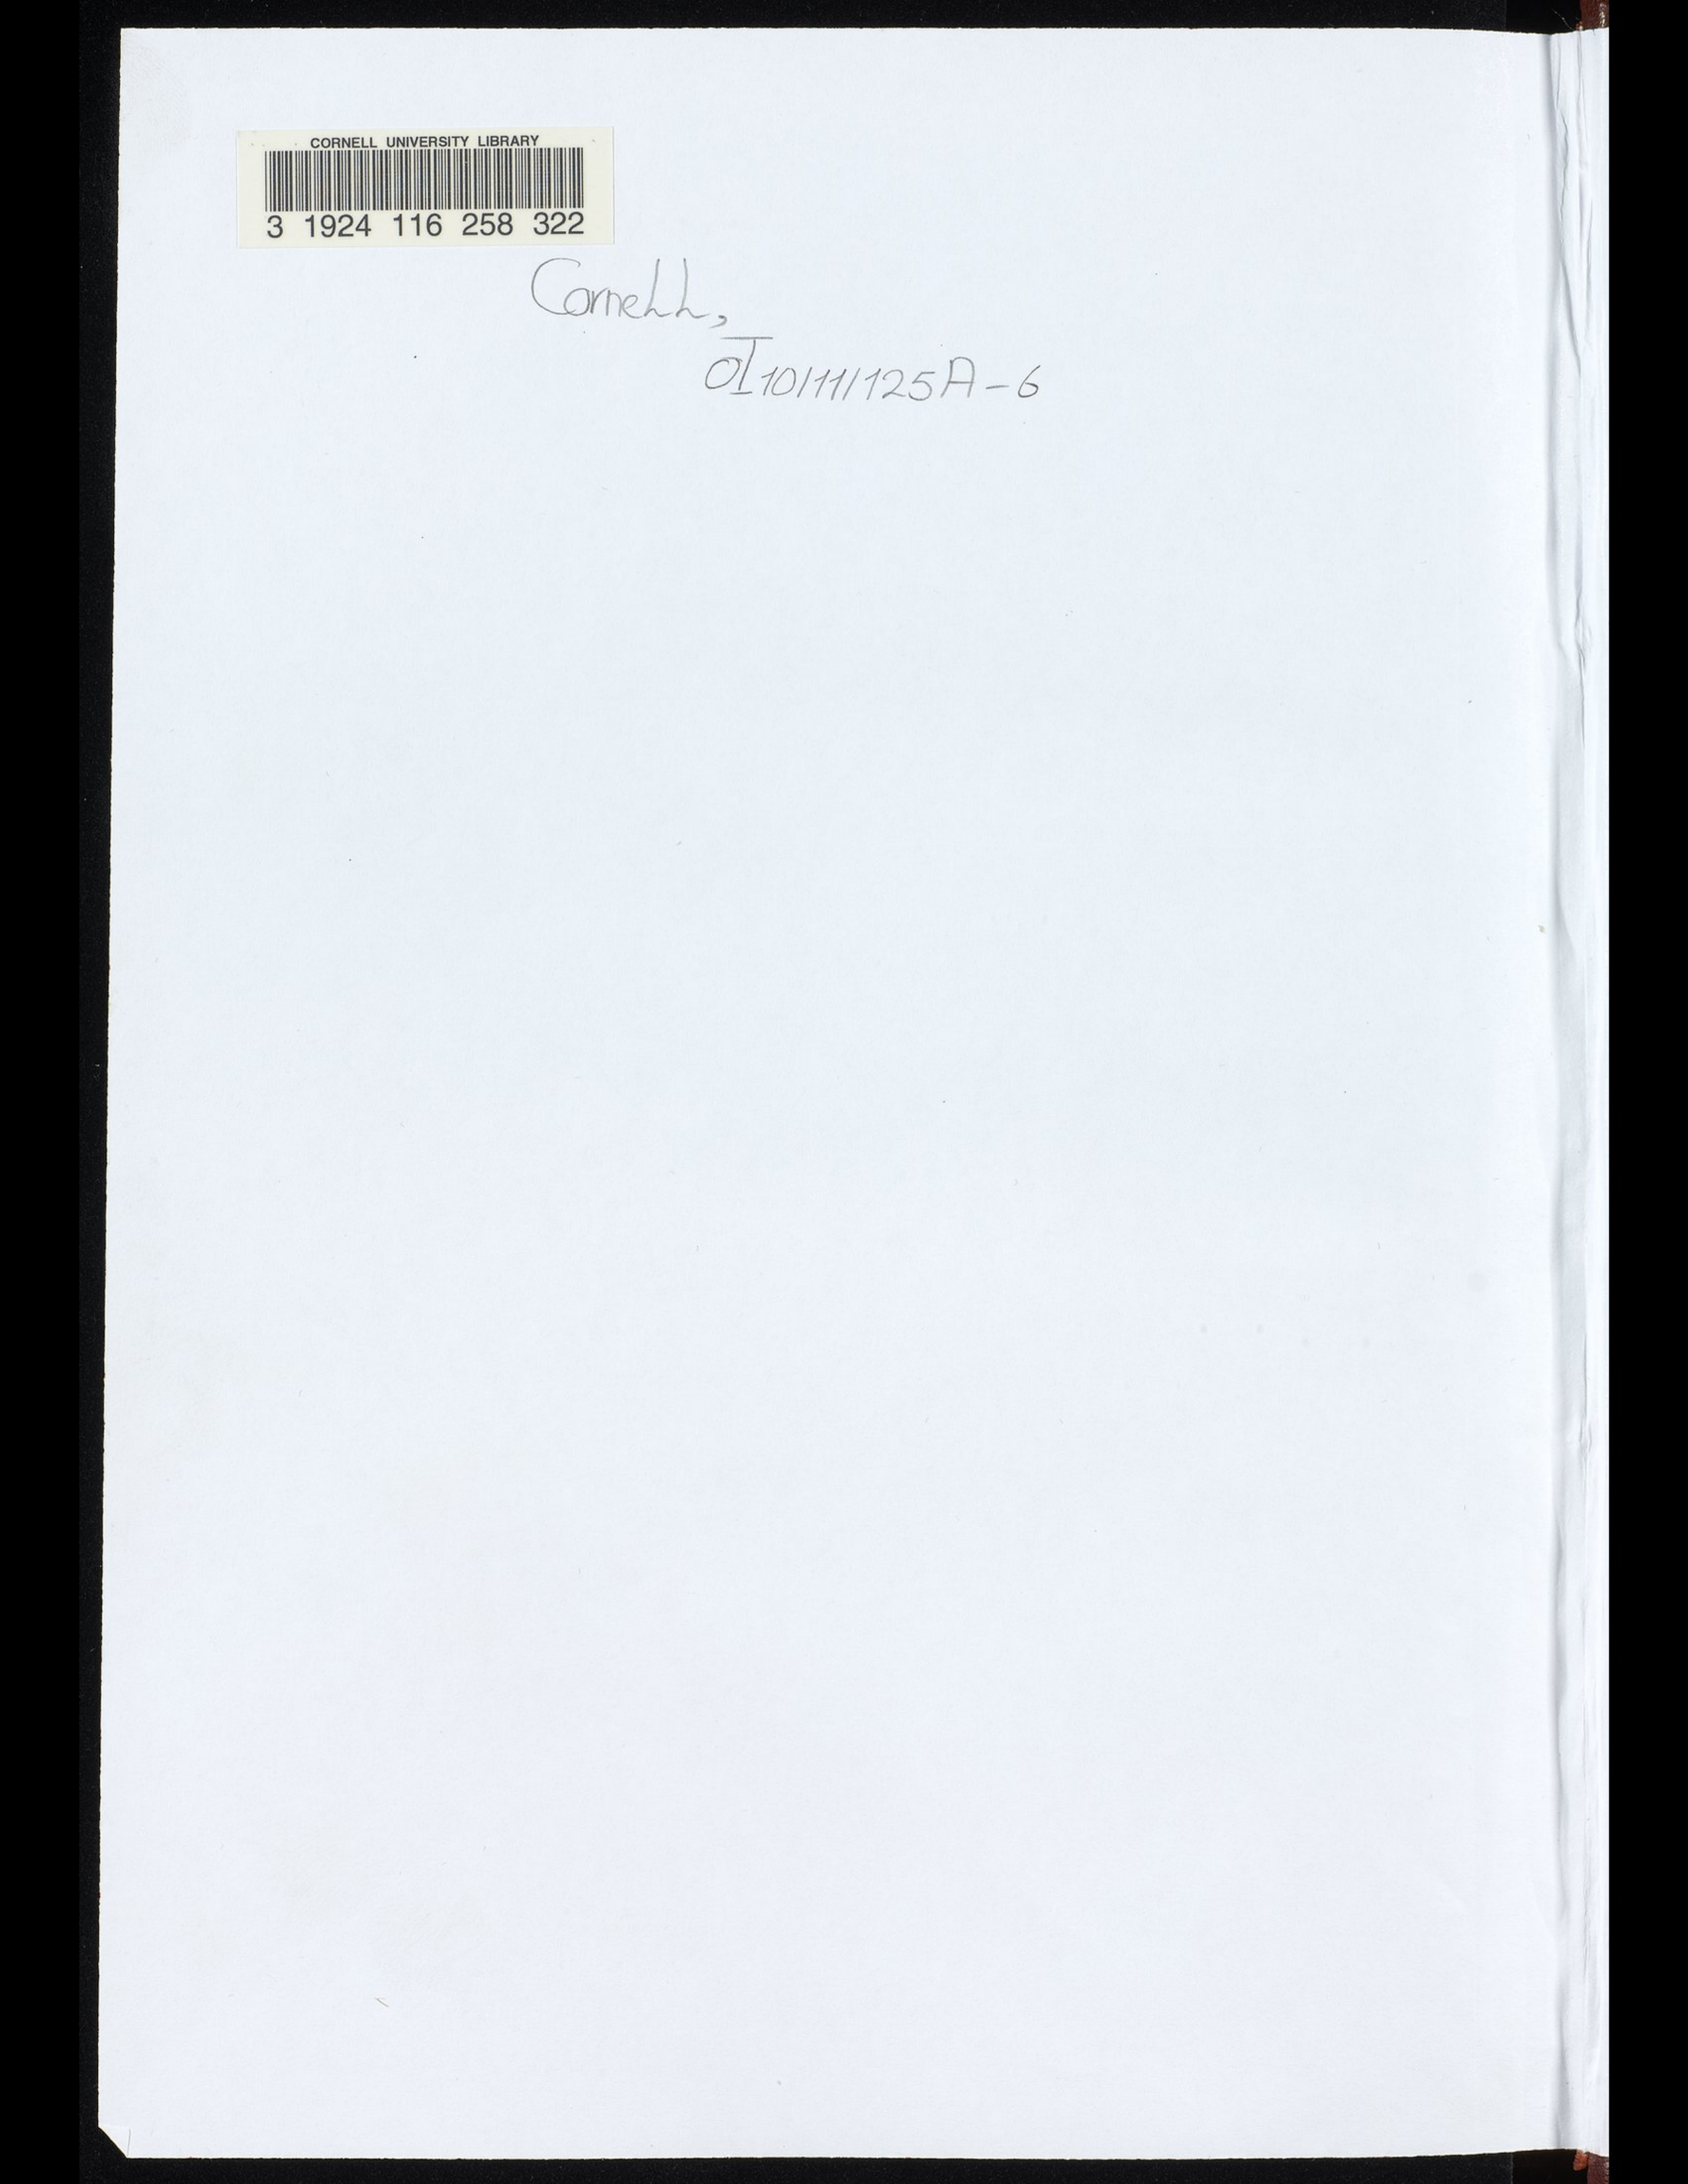 CORNELL UNIVERSITY LIBRARY
3 1924 116 258 322
Cornell,
OI 10/11/125A-6